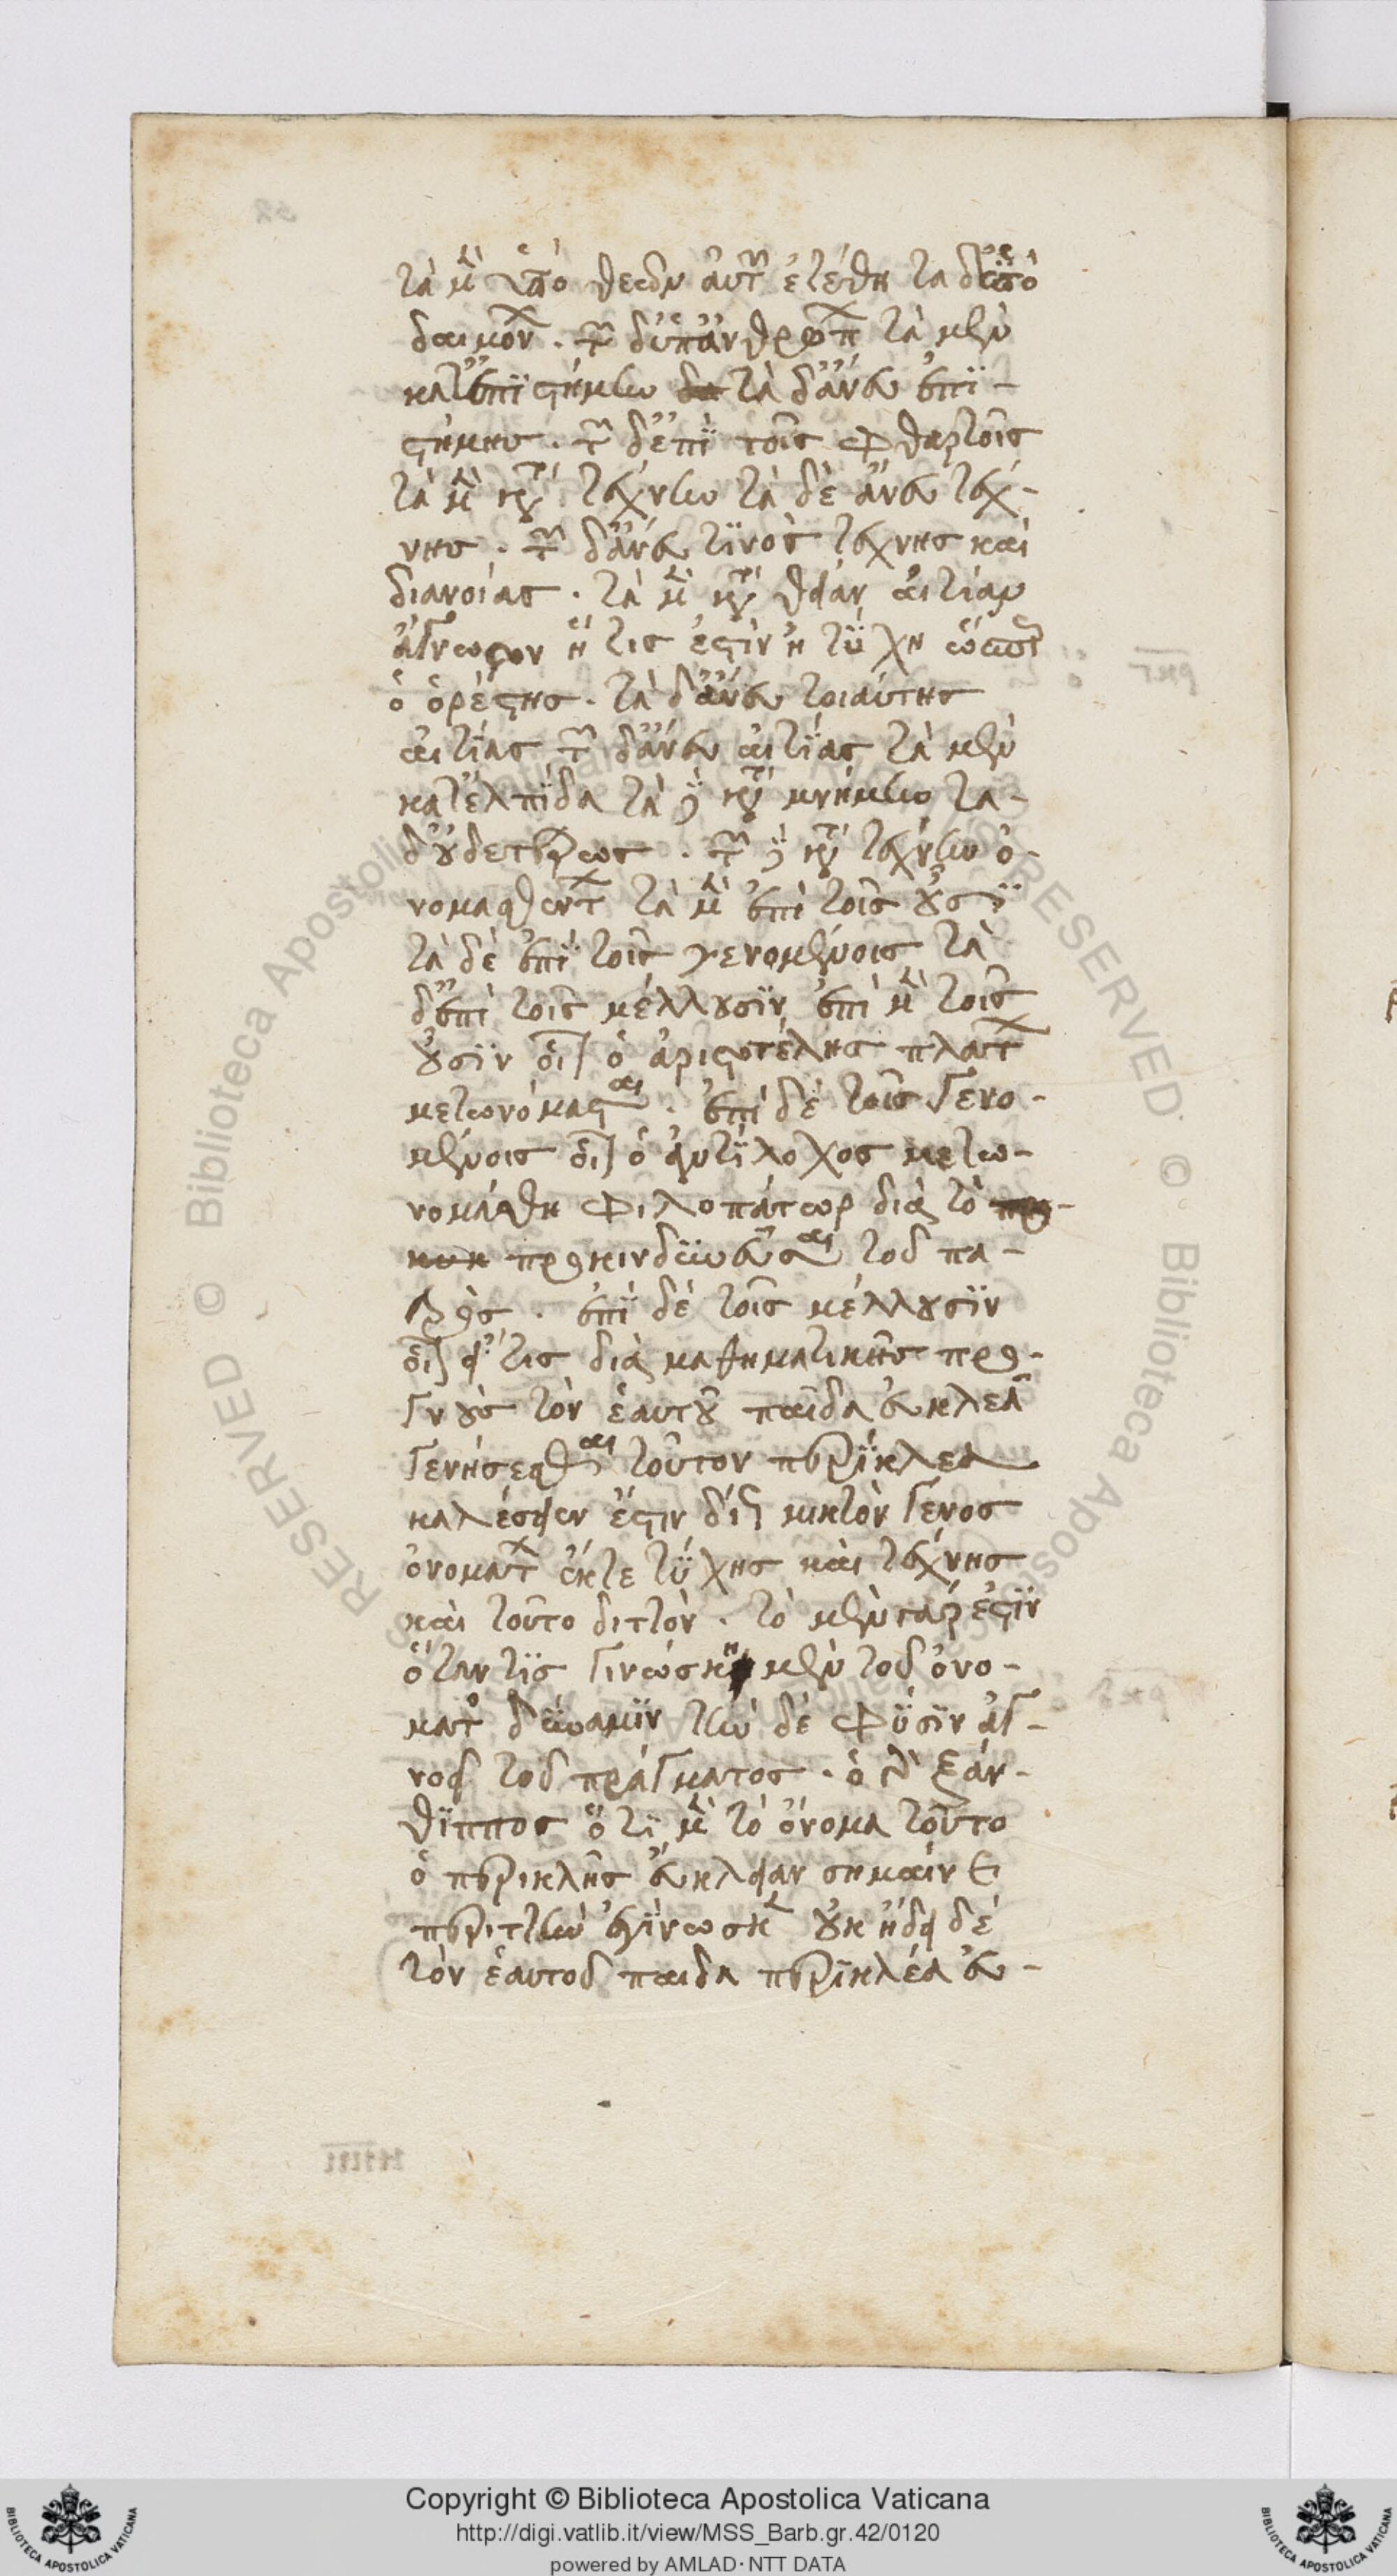 τὰ μὲν ὑπὸ θεῶν αὐτῶν ἐτέθη τὰ δ' ὑπὸ
δαιμόνων. τῶν δ' ὑπ' ἀνθρώπων τὰ μὲν
κατ' ἐπιστήμην τὰ δ' ἄνευ ἐπι-
στήμης. τῶν δ' ἐπὶ τοῖς φθαρτοῖς
τὰ μὲν κατὰ τέχνην τὰ δὲ ἄνευ τέχ-
νης. τῶν δ' ἄνευ τινὸς τέχνης καὶ
διανοίας. τὰ μὲν κατὰ θείαν αἰτίαν
ἄγνωστον ἥτις ἐστὶν ἡ τύχη ὥσπερ
ὁ ὀρέστης. τὰ δ' ἄνευ τοιαύτης
αἰτίας τῶν δ' ἄνευ αἰτίας τὰ μὲν
κατ' ἐλπίδα τὰ δὲ κατὰ μνήμην τὰ
δ' οὐδετέρως. τῶν δὲ κατὰ τέχνην ὀ-
νομασθέντων τὰ μὲν ἐπὶ τοῖς οὖσι
τὰ δὲ ἐπὶ τοῖς γενομένοις τὰ
δ' ἐπὶ τοῖς μέλλουσιν ἐπὶ μὲν τοῖς
οὖσιν οἷον ὁ ἀριστοτέλης πλάτων
μετωνόμασται. ἐπὶ δὲ τοῖς γενο-
μένοις οἷον ὁ ἀντίλοχος μετω-
νομάσθη φιλοπάτωρ διὰ τὸ
προκινδυνεῦσαι τοῦ πα-
τρός. ἐπὶ δὲ τοῖς μέλλουσιν
οἷον εἴ τις διὰ μαθηματικῆς προ-
γνοὺς τὸν ἑαυτοῦ παῖδα εὐκλεᾶ
γενήσεσθαι τοῦτον περικλέα
καλέσειεν ἔστιν δέ τι μικτὸν γένος
ὀνομάτων ἔκ τε τύχης καὶ τέχνης
καὶ τοῦτο διττόν. τὸ μὲν γάρ ἐστιν
ὅταν τις γινώσκῃ μὲν τοῦ ὀνό-
ματος δύναμιν τὴν δὲ φύσιν ἀγ-
νοεῖ τοῦ πράγματος. ὁ γὰρ ξάν-
θιππος ὅτι μὲν τὸ ὄνομα τοῦτο
ὁ περικλῆς εὔκλειαν σημαίνει
περιττὴν ἐγίνωσκεν οὐκ ᾔδει δὲ
τὸν ἑαυτοῦ παῖδα περικλέα εὐ-